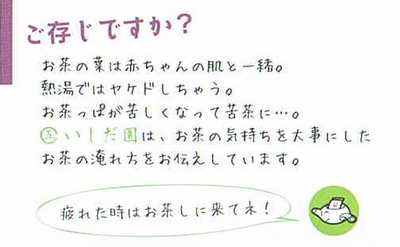 ご存じですか?
お茶の葉は赤ちゃんの肌と一緒。
熱湯ではヤケドしちゃう。
お茶っぱが苦しくなって苦茶に…。
いしだ園は、お茶の気持ちを大事にした
お茶の淹れ方をお伝えしています。
疲れた時はお茶しに来てネ!